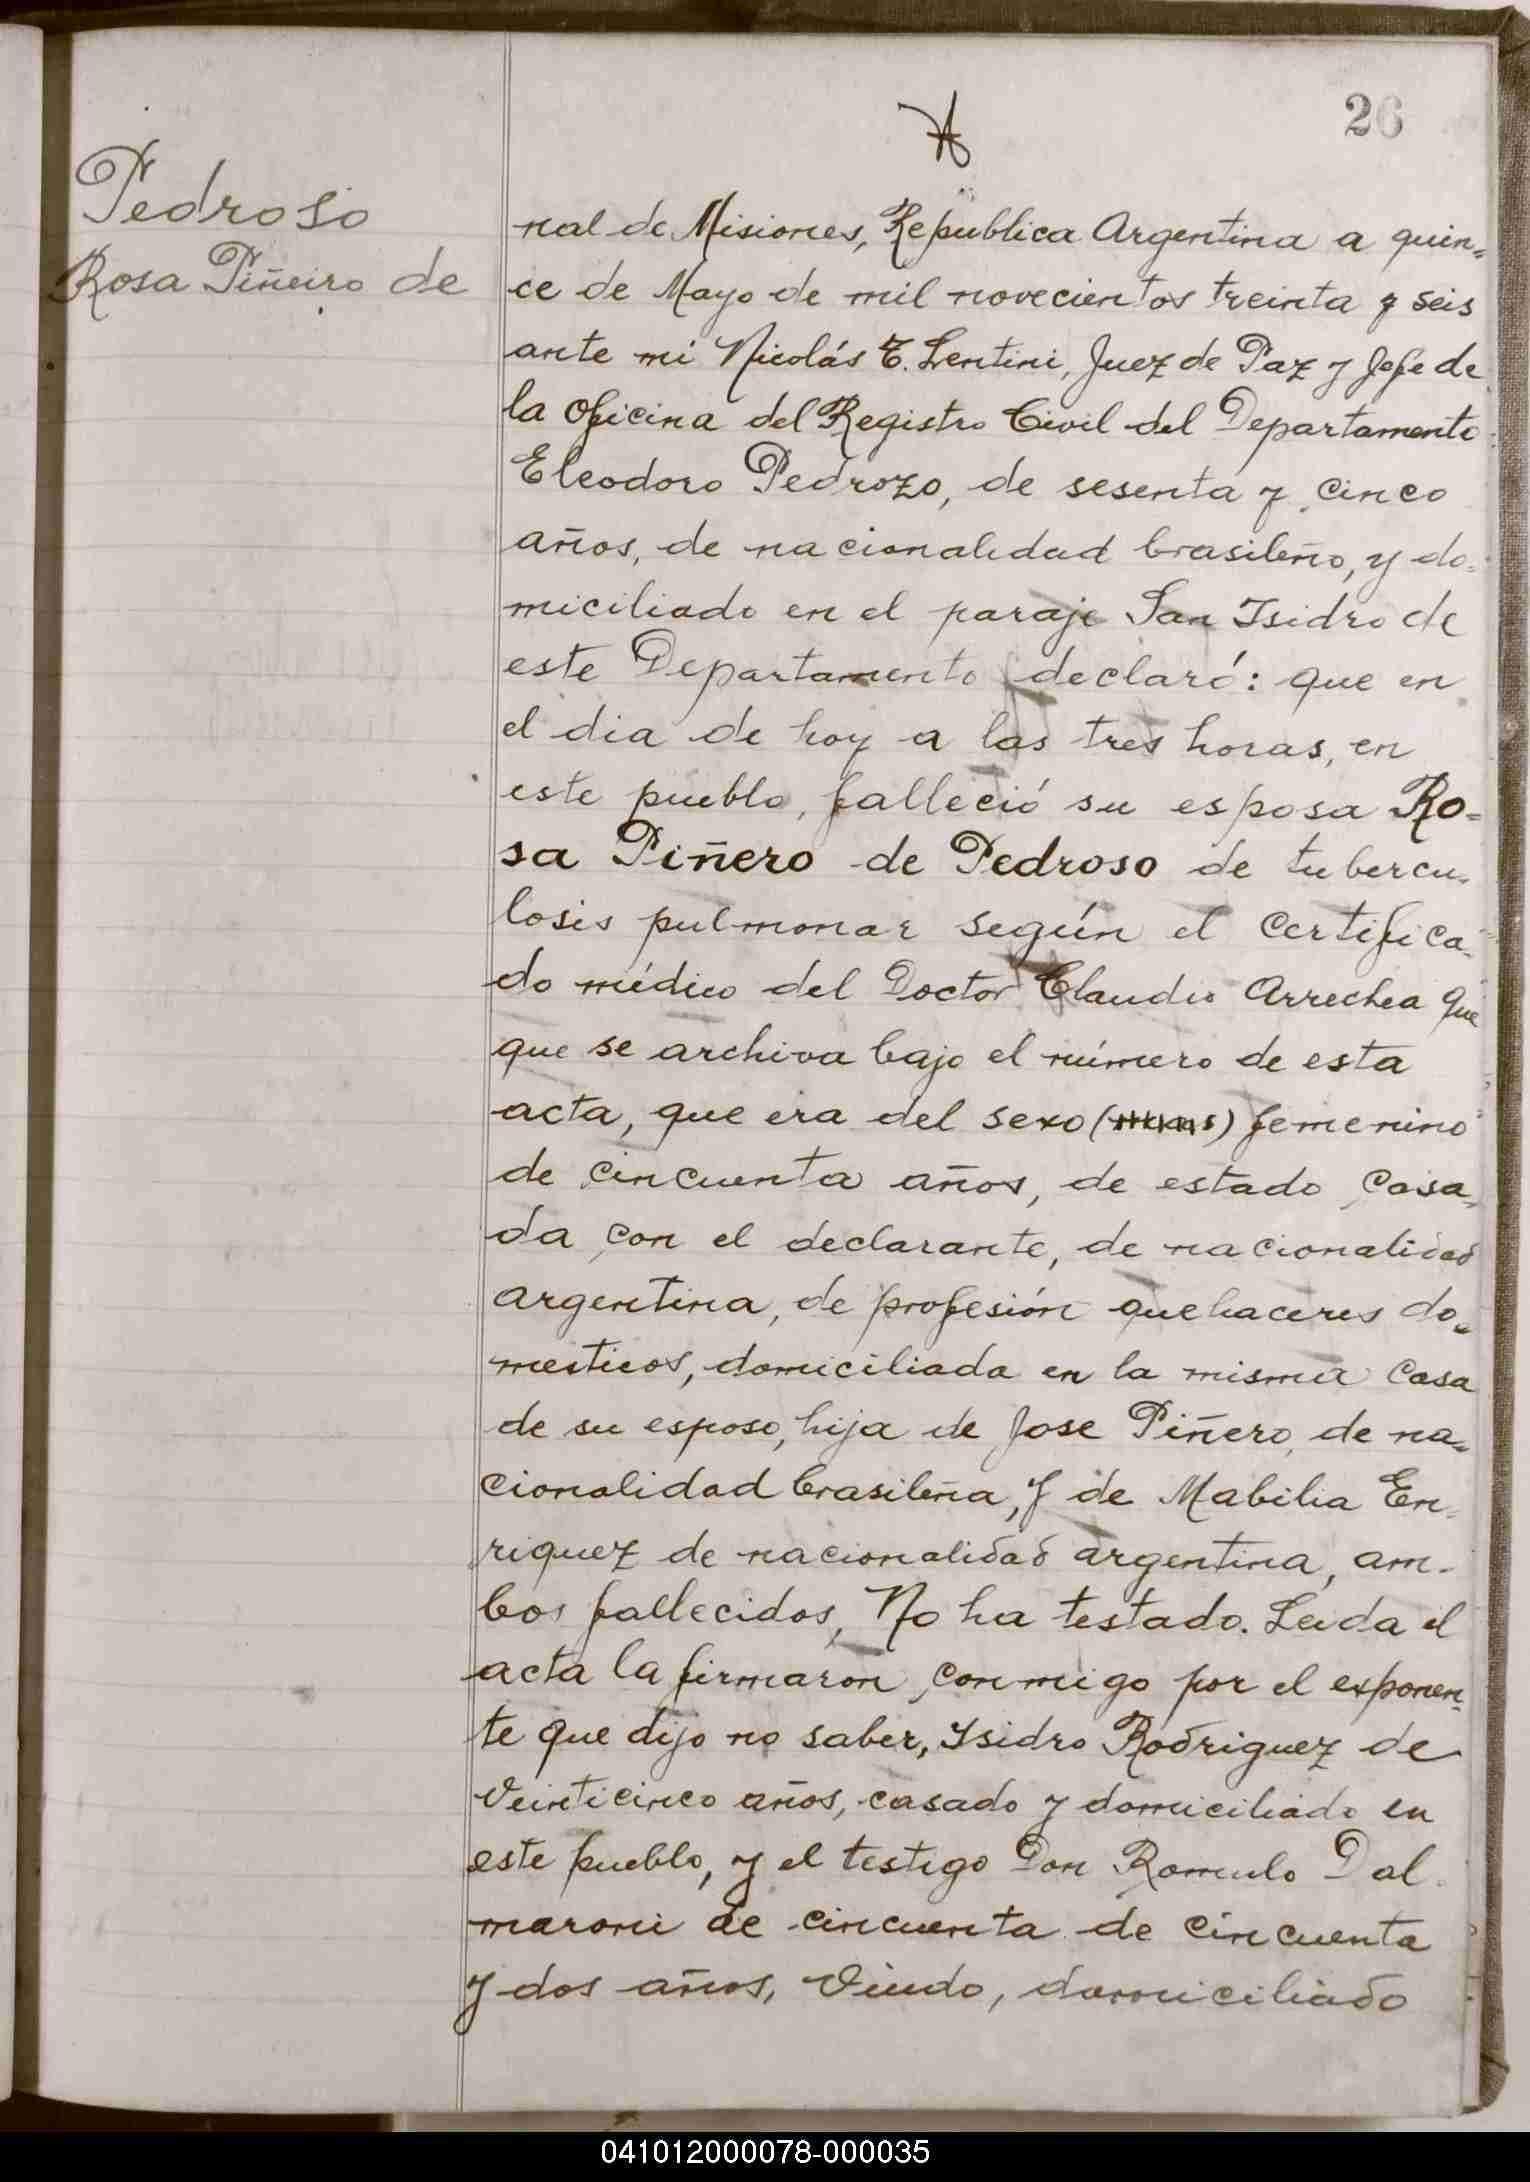 26
Pedroso
Rosa Piñeiro de
nal de Misiones, Republica Argentina a quin=
ce de Mayo de mil novecientos treinta y seis
ante mi Nicolás T. Lentini, Juez de Paz y Jefe de
la Oficina del Registro Civil del Departamento
Eleodoro Pedrozo, de sesenta y cinco
años, de nacionalidad brasileño, y do=
miciliado en el paraje San Isidro de
este Departamento declaró: que en
el dia de hoy a las tres horas, en
este pueblo, falleció su esposa Ro=
sa Piñero de Pedroso de tubercu-
losis pulmonar según el certifica-
do médico del Doctor Claudio Arrechea que
que se archiva bajo el número de esta
acta, que era del sexo femenino
de cincuenta años, de estado casa-
da con el declarante, de nacionalidad
argentina, de profesión quehaceres do=
mesticos, domiciliada en la misma casa
de su esposo, hija de Jose Piñero, de na=
cionalidad brasileña, y de Mabilia En-
riquez de nacionalidad argentina, am-
bos fallecidos, No ha testado. Leida el
acta la firmaron conmigo por el exponen-
te que dijo no saber, Isidro Rodriguez de
veinticinco años, casado y domiciliado en
este pueblo, y el testigo Don Romulo Dal-
maroni de cincuenta de cincuenta
y dos años, viudo, domiciliado
041012000078-000035